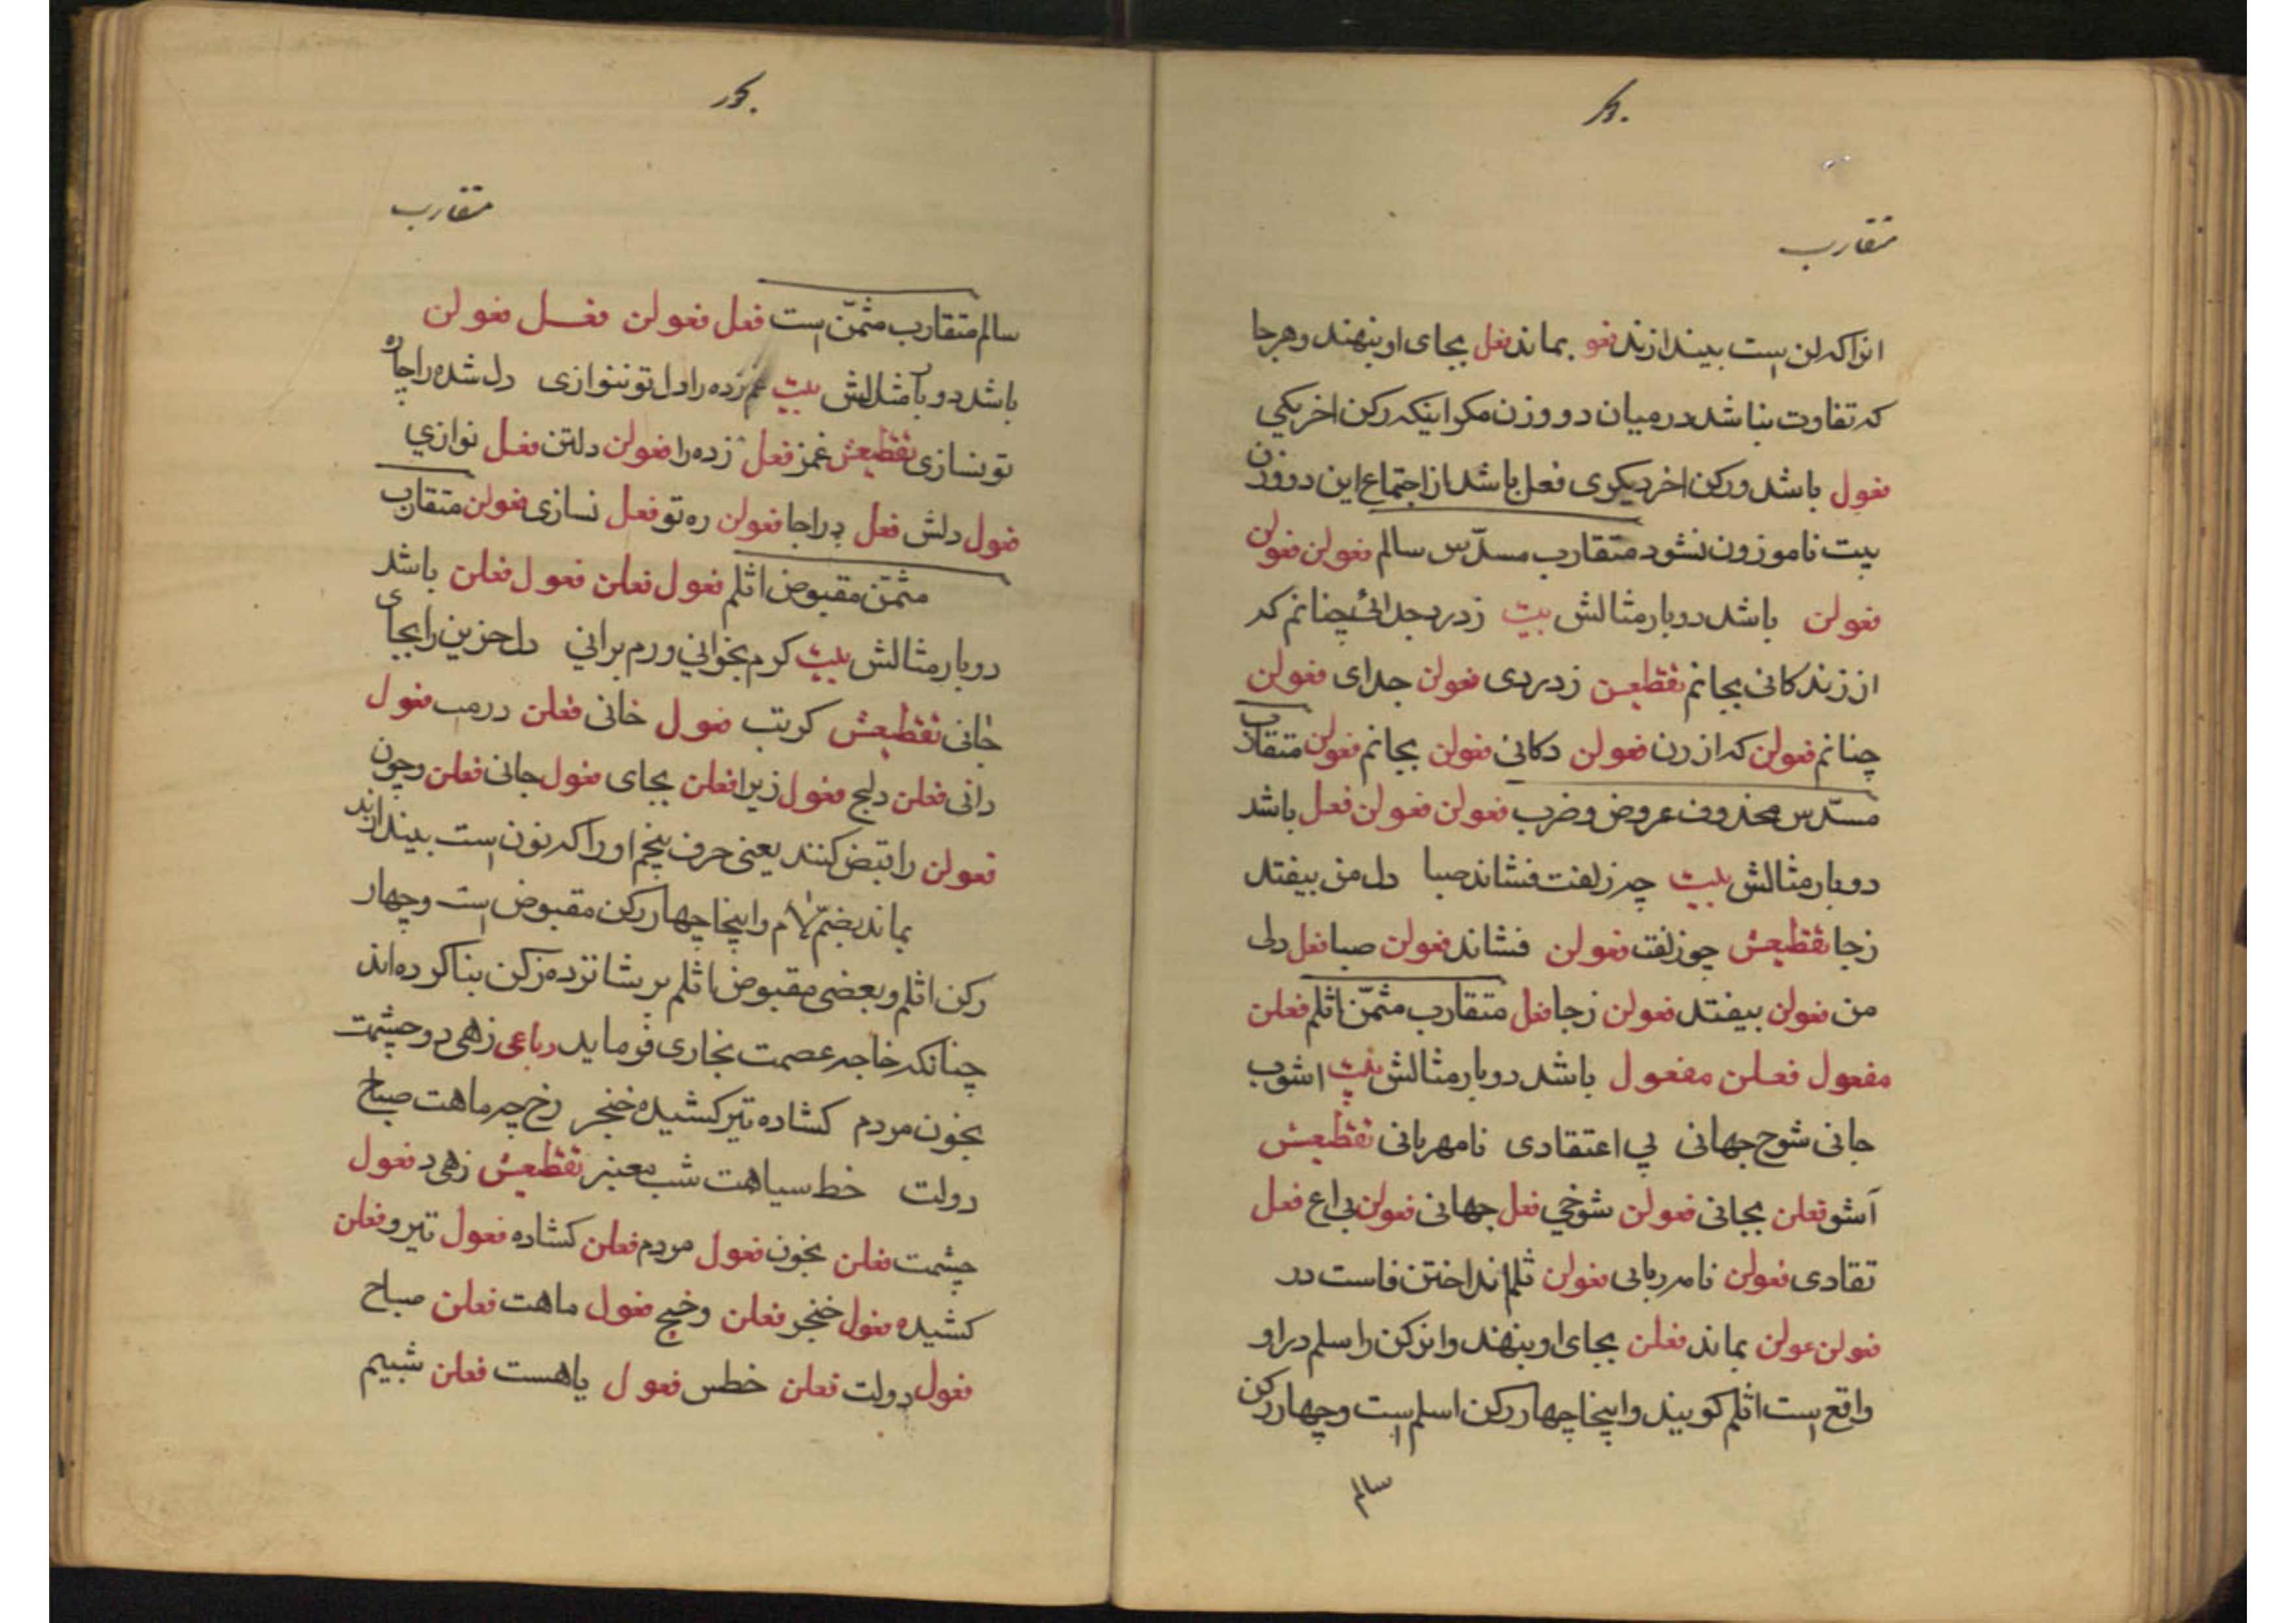 متقارب
انرا که لن است بیندازند فعو بماند فعل بجای او بنهند و هر جا
که تفاوت نباشد در میان دو وزن مکر اینکه رکن اخر یکی
فعول باشد و رکن اخر دیکری فعل باشد از اجتماع این دو وزن
بیت ناموزون نشود متقارب مسدّس سالم فعولن فعولن
فعولن باشد دوبار مثالش بیت ز درد جدائی چنانم که
از زندکانی بجانم تقطیعش ز دردی فعولن جدای فعولن
چنانم فعولن که از زن فعولن دکانی فعولن بجانم فعولن متقارب
مسدّس محذوف عروض و ضرب فعولن فعولن فعل باشد
دوبار مثالش بیت چو زلفت فشاند صبا دل من بیفتد
ز جا تقطیعش چو زلفت فعولن فشاند فعولن صبا فعل دلی
من فعولن بیفتد فعولن ز جا فعل متقارب مثمّن اثلم فعلن
مفعول فعلن مفعول باشد دوبار مثالش بیت اشوب
جانی شوخ جهانی بی اعتقادی نامهربانی تقطیعش
آشو فعلن بجانی فعولن شوخی فعل جهانی فعولن بی اع فعل
تقادی فعولن نامه ربانی فعولن ثلم انداختن فاست در
فعولن عولن بماند فعلن بجای او بنهند و انرکن را سلم در او
واقع است اثلم کویند و اینجا چهار رکن اسلم است و چهار رکن
سالم
متقارب
سالم متقارب مثمّن است فعل فعولن فعل فعولن
باشد دوبار مثالش بیت غم زده را دل تو ننوازی دل شده را چاره
تو نسازی تقطیعش غمز فعل زده را فعولن دلتن فعل نوازی
فعول دلش فعل ده را چا فعولن ره تو فعل نسازی فعولن متقارب
مثمّن مقبوض اثلم فعول فعلن فعول فعلن باشد
دوبار مثالش بیت کرم بخوانی ورم برانی دل حزین را بجای
جانی تقطیعش کرتب فعول خانی فعلن درمب فعول
رانی فعلن دلح فعول زیرا فعلن بجای فعول جانی فعلن و چون
فعولن را قبض کنند یعنی حرف پنجم او را که نون است بیندازند
بماند بضمّ لام و اینجا چهار رکن مقبوض است و چهار
رکن اثلم و بعضی مقبوض اثلم بر شانزده رکن بنا کرده اند
چنانکه خاجه عصمت بخاری فرماید رباعی زهی دو چشمت
بخون مردم کشاده تیر کشیده خنجر رخ چو ماهت صباح
دولت خط سیاهت شب معنبر تقطیعش زهی د فعول
چشمت فعلن بخون فعول مردم فعلن کشاده فعول تیر و فعلن
کشیده فعول خنجر فعلن رخی چ فعول ماهت فعلن صباح
فعول دولت فعلن خطس فعول یاهست فعلن شبیم